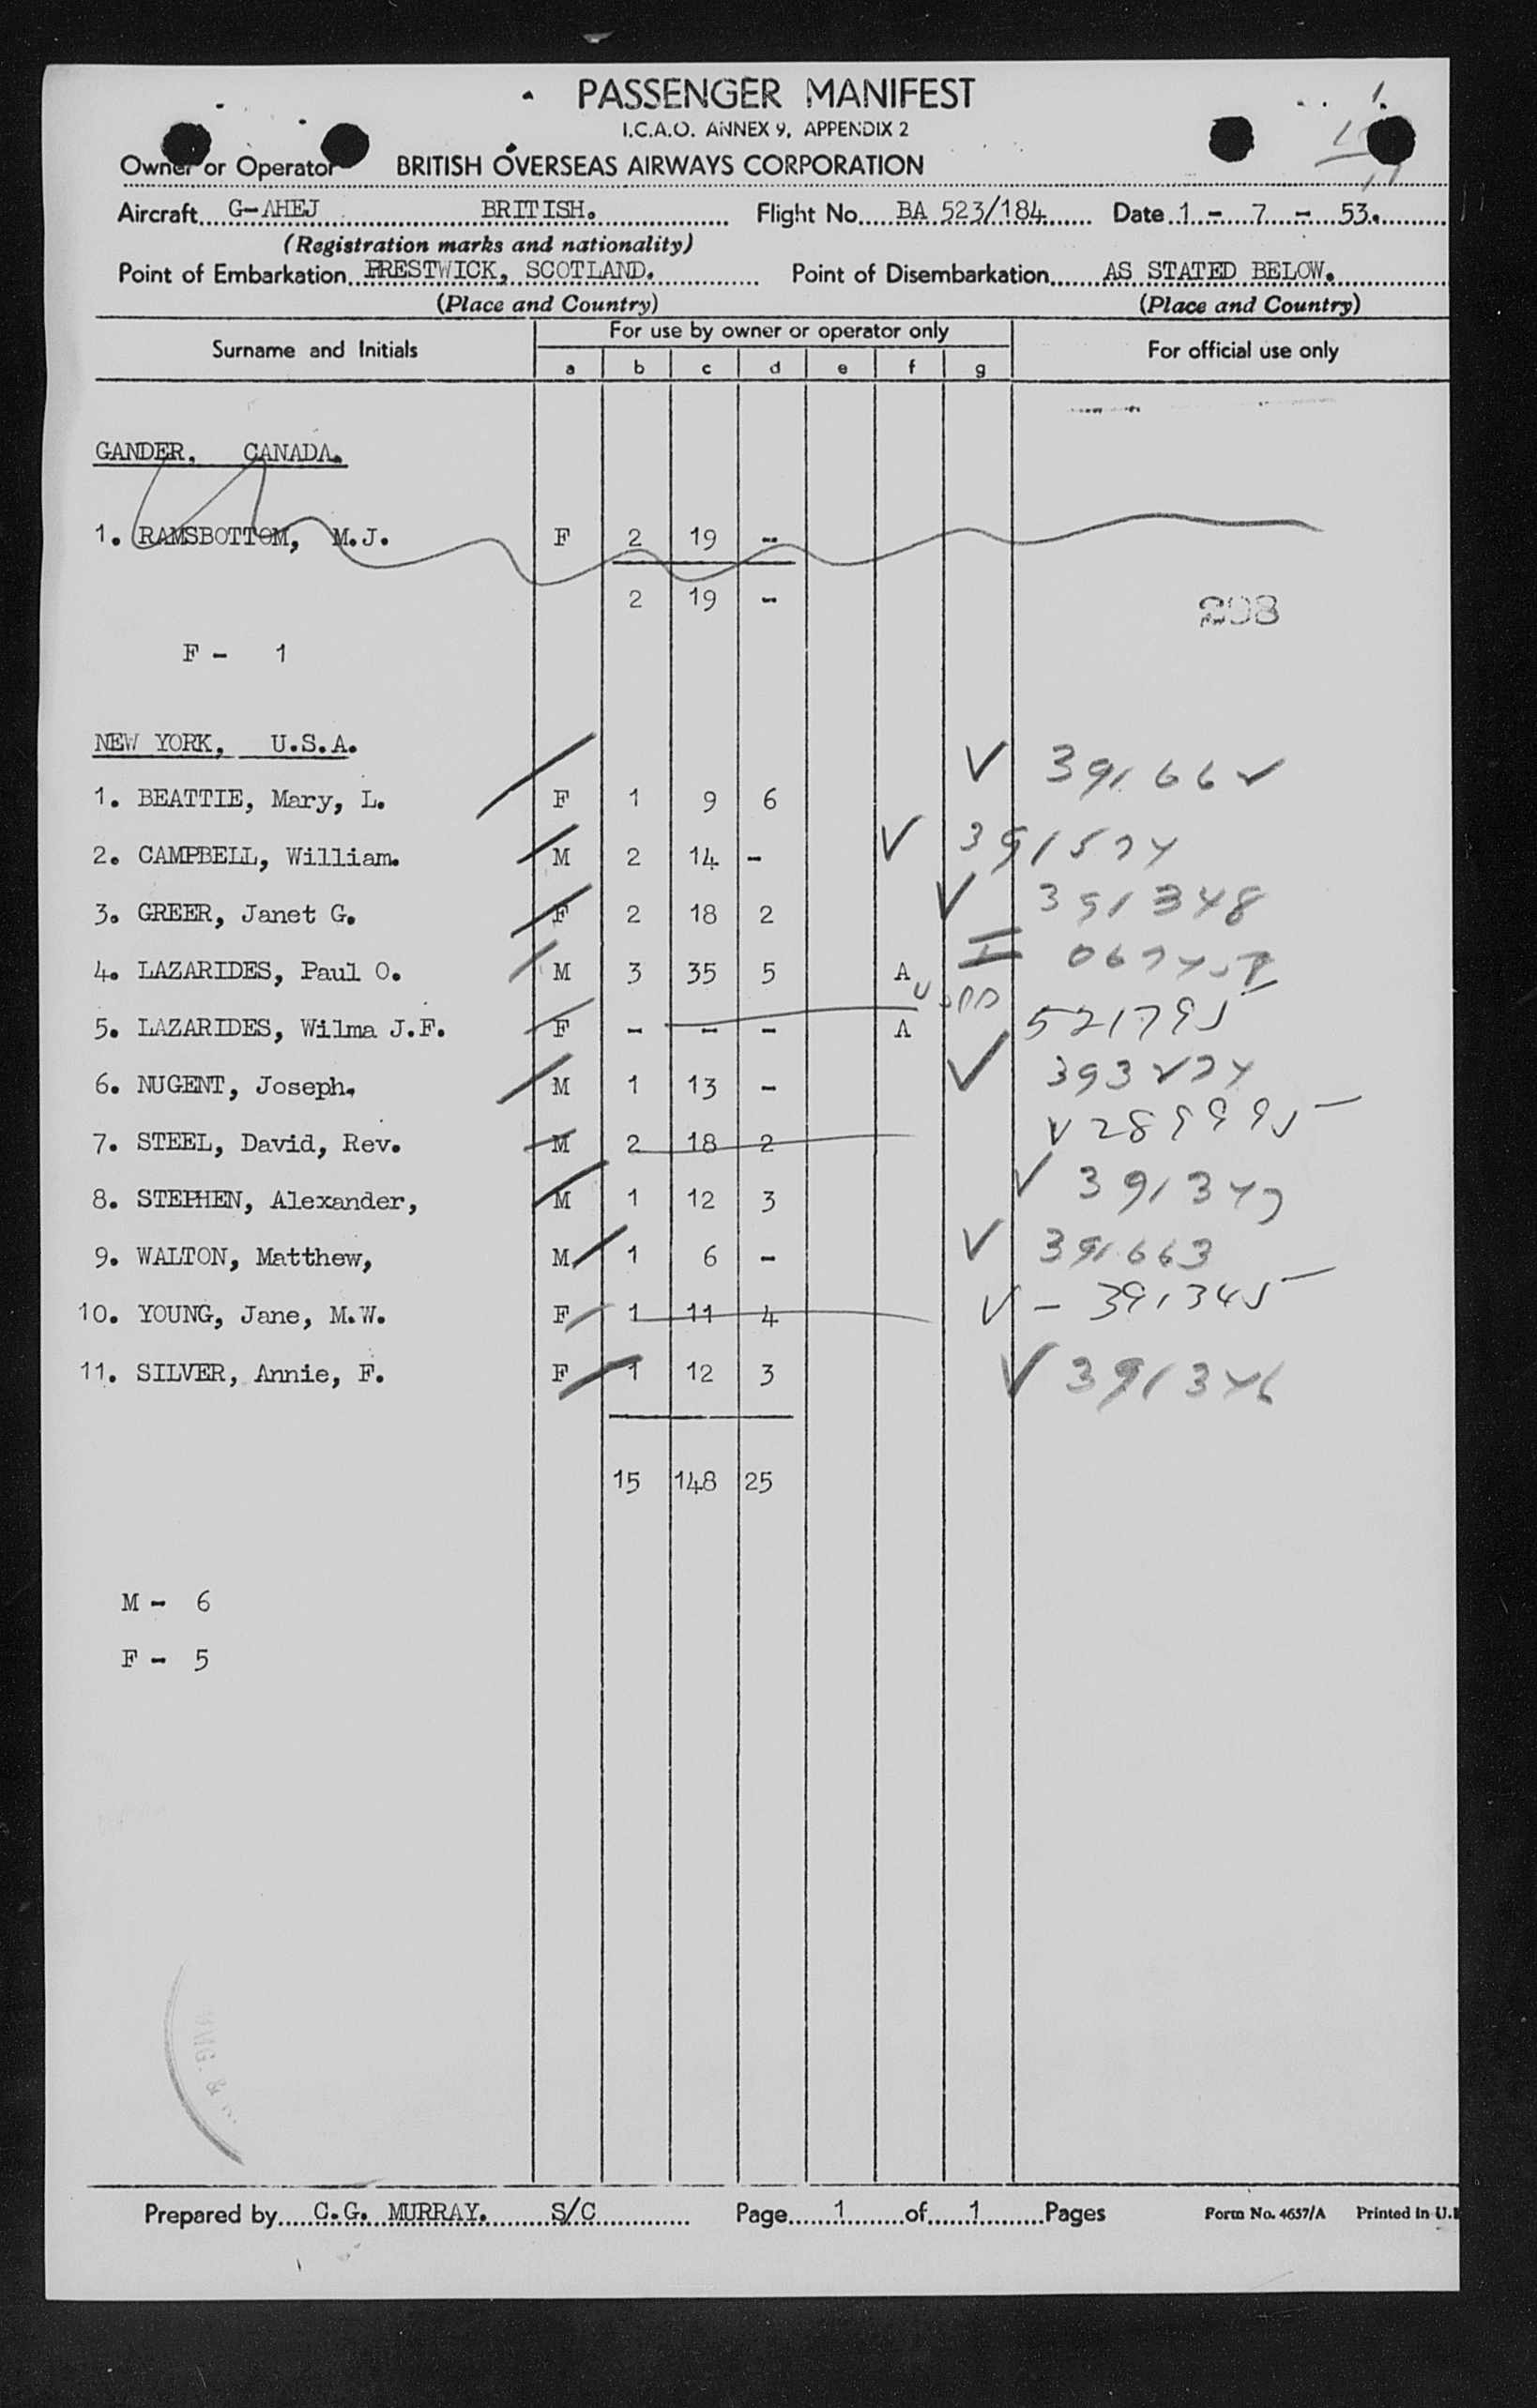 PASSENGER MANIFEST
I.C.A.O. ANNEX 9, APPENDIX 2
Owner or Operator BRITISH OVERSEAS AIRWAYS CORPORATION
Aircraft G-AHEJ BRITISH. Flight No. BA 523/184 Date 1 - 7 - 53.
(Registration marks and nationality)
Point of Embarkation PRESTWICK, SCOTLAND. Point of Disembarkation AS STATED BELOW.
(Place and Country) (Place and Country)
Surname and Initials For use by owner or operator only For official use only
a b c d e f g
GANDER, CANADA.
1. RAMSBOTTOM, M.J. F 2 19 -
2 19 -
298
F - 1
NEW YORK, U.S.A.
1. BEATTIE, Mary, L. F 1 9 6 ✓ 39166 ✓
2. CAMPBELL, William. M 2 14 - ✓
3. GREER, Janet G. F 2 18 2 ✓ 391348
4. LAZARIDES, Paul O. M 3 35 5 A I
5. LAZARIDES, Wilma J.F. F - - - A 521795
6. NUGENT, Joseph, M 1 13 - ✓
7. STEEL, David, Rev. M 2 18 2 V 289995
8. STEPHEN, Alexander, M 1 12 3 ✓ 391347
9. WALTON, Matthew, M 1 6 - ✓ 391663
10. YOUNG, Jane, M.W. F 1 11 4 ✓ - 391345
11. SILVER, Annie, F. F 1 12 3 ✓ 391346
15 148 25
M - 6
F - 5
Prepared by C.G. MURRAY. S/C Page 1 of 1 Pages Form No. 4657/A Printed in U.